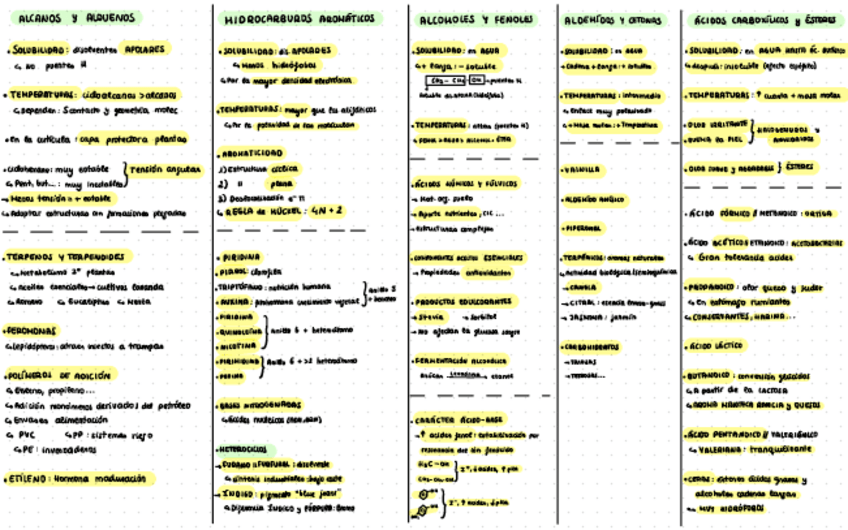 ALCANOS Y ALQUENOS
• SOLUBILIDAD: disolventes APOLARES
↳ No puentes H
• TEMPERATURAS: cicloalcanos > alcanos
↳ dependen: S contacto y geometría molec
• En la cutícula: capa protectora plantas
• ciclohexano: muy estable
↳ Pent, but...: muy inestables
Tensión angular
→ Menos tensión = + estable
↳ Adoptar estructuras con formaciones plegadas
• TERPENOS Y TERPENOIDES
↳ Metabolismo 2º plantas
↳ aceites esenciales → cultivos lavanda
↳ Romero ↳ Eucaliptus ↳ Menta
• FEROMONAS
↳ Lepidópteros: atraer insectos a trampas
• POLÍMEROS DE ADICIÓN
↳ Etileno, propileno...
↳ Adición monómeros derivados del petróleo
↳ Envases alimentación
↳ PVC ↳ PP: sistemas riego
↳ PE: invernaderos
• ETILENO: Hormona maduración
HIDROCARBUROS AROMÁTICOS
• SOLUBILIDAD: dis. APOLARES
↳ Menos hidrófobos
↳ Por la mayor densidad electrónica
• TEMPERATURAS: mayor que la alifáticos
↳ Por la polaridad de las moléculas
• AROMATICIDAD
1) Estructura cíclica
2) " plana
3) Deslocalización e⁻ π
↳ REGLA de HÜCKEL: 4N + 2
• PIRIDINA
• PIRROL: clorofila
• TRIPTÓFANO: nutrición humana
• AUXINA: fitohormona crecimiento vegetal
anillo 5 + benceno
• PIRIDINA
• QUINOLEÍNA
• NICOTINA
anillo 6 + heteroátomo
• PIRIMIDINA
• PURINA
Anillo 6 + >1 heteroátomo
• BASES NITROGENADAS
↳ Ácidos nucleicos (ADN, ARN)
• HETEROCICLOS
→ FURANO → FURFURAL: disolvente
↳ síntesis industriales: bajo coste
→ ÍNDIGO: pigmento "blue jeans"
↳ Diferencia ÍNDIGO y PÚRPURA: Bromo
ALCOHOLES Y FENOLES
• SOLUBILIDAD: en AGUA
↳ + larga: - soluble
CH₃ - CH₂ - OH → puentes H
• TEMPERATURAS: altas (puentes H)
• ÁCIDOS HÚMICOS Y FÚLVICOS
→ Mat. org. suelo
→ Aporte nutrientes, CIC...
→ Estructuras complejas
• COMPONENTES ACEITES ESENCIALES
→ Propiedades antioxidantes
• PRODUCTOS EDULCORANTES
→ Stevia → Sorbitol
→ No afectan la glucosa sangre
• FERMENTACIÓN ALCOHÓLICA
azúcar → etanol
• CARÁCTER ÁCIDO-BASE
→ ↑ acidez fenol: estabilización por
resonancia del ion fenóxido
H₃C - OH
CH₃-CH₂-OH
ALDEHÍDOS Y CETONAS
• SOLUBILIDAD: en AGUA
↳ Cadena + larga: - soluble
• TEMPERATURAS: intermedio
→ Enlace muy polarizado
→ + Masa molec: + Temperatura
• VAINILLA
• ALDEHÍDO ANÍSICO
• PIPERONAL
• TERPÉNICOS: aromas naturales
→ Actividad biológica/semioquímicos
→ CANELA
→ CITRAL: esencia limón-giros
→ JASMONA: jazmín
• CARBOHIDRATOS
→ TRIOSAS
→ TETROSAS...
ÁCIDOS CARBOXÍLICOS Y ÉSTERES
• SOLUBILIDAD: en AGUA HASTA ÁC.
↳ después: insoluble
• TEMPERATURAS: ↑ cuanto + masa molec
• OLOR IRRITANTE
• QUEMA LA PIEL
HALOGENUROS Y ANHÍDRIDOS
• OLOR SUAVE Y AGRADABLE } ÉSTERES
• ÁCIDO FÓRMICO // METANOICO: ORTIGA
• ÁCIDO ACÉTICO // ETANOICO: ACETOBACTERIAS
↳ Gran tolerancia acidez
• PROPANOICO: olor queso y sudor
↳ En estómago rumiantes
↳ CONSERVANTES, HARINA...
• ÁCIDO LÁCTICO
• BUTANOICO: conversión glicéridos
↳ A partir de la LACTOSA
↳ AROMA MANTECA RANCIA Y QUESOS
• ÁCIDO PENTANOICO // VALERIÁNICO
↳ VALERIANA: tranquilizante
• CERAS: ésteres ácidos grasos y
alcoholes cadenas largas
↳ MUY HIDRÓFOBOS